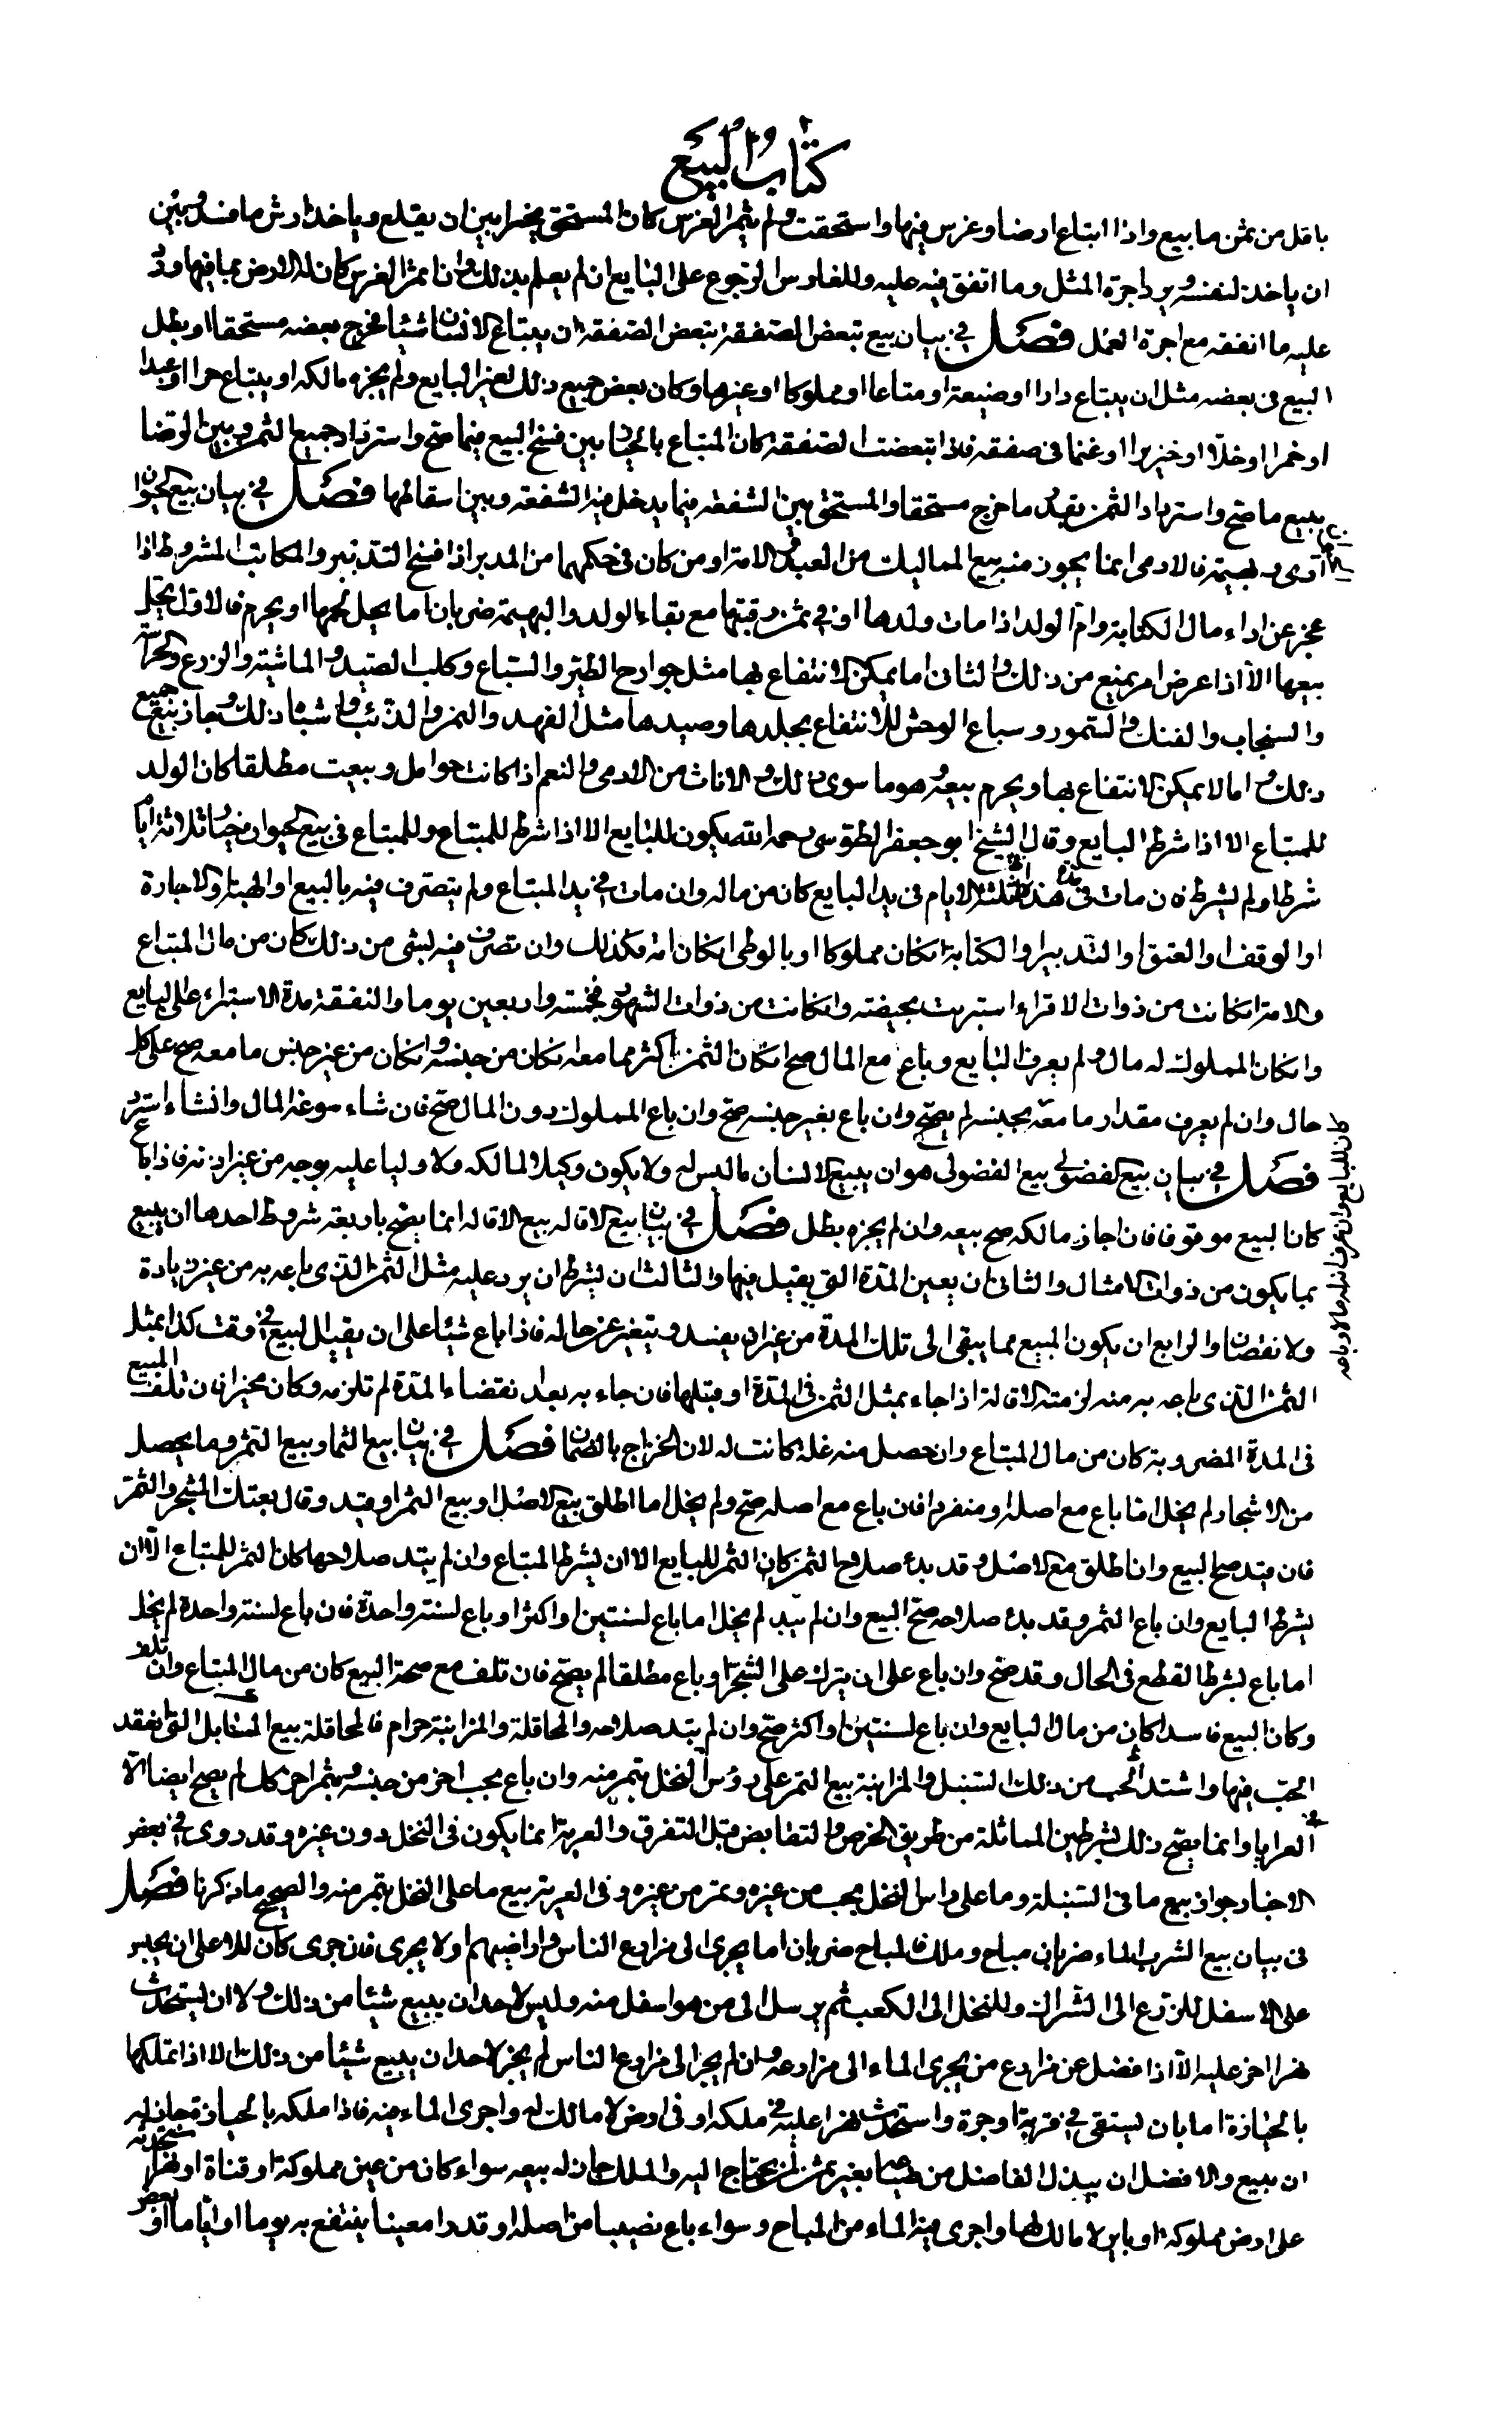 كتاب البيع
باقل من ثمن ما بيع واذا ابتاع ارضا وغرس فيها واستحقت ولم يثمر الغرس كان المستحق مخيرا بين ان يقلع وياخذ ارش ما فسد وبين
ان ياخذ لنفسه ويرد اجرة المثل وما انفق فيه عليه وللغارس الرجوع على البايع ان لم يعلم بذلك وان اثمر الغرس كان له الارض بما فيها ورد
عليه ما انفقه مع اجرة العمل فصل في بيان بيع تبعض الصفقة تبعض الصفقة ان يبتاع الانسان شيئا فخرج بعضه مستحقا او بطل
البيع في بعضه مثل ان يبتاع دارا او ضيعة او متاعا او مملوكا او غيرها وكان بعض جميع ذلك لغير البايع ولم يجزه مالكه او يبتاع حرا او عبدا
او خمرا او خلا او خنزيرا او غنما في صفقه فاذا تبعضت الصفقة كان المبتاع بالخيار بين فسخ البيع فيما صح واسترداد جميع الثمن وبين الرضا
ببيع ما صح واسترداد الثمن بقدر ما خرج مستحقا والمستحق بين الشفعه فيما يدخل فيه الشفعه وبين اسقاطها فصل في بيان بيع الحيوان
آدمى وبهيمة فالادمى انما يجوز منه بيع المماليك من العبد والامة او من كان في حكمهما من المدبر اذا فسخ التدبير والمكاتب المشروط اذا
عجز عن اداء مال الكتابة وام الولد اذا مات ولدها او في ثمن رقبتها مع بقاء الولد والبهيمة ضربان ما يحل لحمها او يحرم فالاول يحل
بيعها الا اذا عرض امر يمنع من ذلك والثانى اما يمكن الانتفاع بها مثل جوارح الطير والسباع وكلب الصيد والماشية والزرع والحراسة
والسنجاب والفنك والسمور وسباع الوحش للانتفاع بجلدها وصيدها مثل الفهد والنمر والذئب واشباه ذلك وجاز بيع جميع
ذلك واما لا يمكن الانتفاع بها ويحرم بيعه وهو ما سوى ذلك والاناث من الادمى والنعم اذا كانت حوامل وبيعت مطلقا كان الولد
للمبتاع الا اذا شرط البايع وقال الشيخ ابو جعفر الطوسى رحمه الله يكون للبايع الا اذا شرط للمبتاع وللمبتاع في بيع الحيوان خيار ثلاثة ايام
شرط او لم يشرط فان مات في مدة هذه الثلثة الايام في يد البايع كان من ماله وان مات في يد المبتاع ولم يتصرف فيه بالبيع او الهبة او الاجارة
او الوقف او العتق او التدبير او الكتابة ان كان مملوكا او بالوطى ان كان امة فكذلك وان تصرف فيه بشى من ذلك كان من مال المبتاع
والامة ان كانت من ذوات الاقراء استبرئت بحيضة وان كانت من ذوات الشهور فخمسة واربعين يوما والنفقة مدة الاستبراء على البايع
وان كان المملوك له مال ولم يعرف البايع وباع مع المال صح ان كان الثمن اكثر مما معه ان كان من جنسه وان كان من غير جنس ما معه صح على كل
حال وان لم يعرف مقدار ما معه بجنسه لم يصح وان باع بغير جنسه صح وان باع المملوك دون المال صح فان شاء سوغه المال وان شاء استرد
كان للبايع وان عرف ان له مالا وباعه
فصل في بيان بيع الفضولى بيع الفضولى هو ان يبيع الانسان ما ليس له ولا يكون وكيلا لمالكه ولا وليا عليه بوجه من غير اذنه فاذا باع
كان البيع موقوفا فان اجاز مالكه صح بيعه وان لم يجزه بطل فصل في بيان بيع الاقاله بيع الاقاله انما يصح باربعة شروط احدها ان يبيع
بما يكون من ذوات الامثال والثانى ان يعين المدة التى يقيل فيها والثالث ان يشرط ان يرد عليه مثل الثمن الذى باعه به من غير زيادة
ولا نقصان والرابع ان يكون المبيع مما يبقى الى تلك المدة من غير ان يفسد ويتغير عن حاله فاذا باع شيئا على ان يقيل البيع في وقت كذا بمثل
الثمن الذى باعه به منه لزمته الاقالة اذا جاء بمثل الثمن في المدة او قبلها فان جاء به بعد انقضاء المدة لم تلزمه وكان مخيرا فان تلف المبيع
في المدة المضروبة كان من مال المبتاع وان حصل منه غلة كانت له لان الخراج بالضمان فصل في بيان بيع الثمار بيع الثمر وما يحصل
من الاشجار لم يخل اما باع مع اصله او منفردا فان باع مع اصله صح ولم يخل اما اطلق بيع الاصل او بيع الثمر او قيد وقال بعتك الشجر والثمر
فان قيد صح البيع وان اطلق مع الاصل وقد بدء صلاح الثمر كان الثمر للبايع الا ان يشرط المبتاع وان لم يبد صلاحها كان الثمر للمبتاع الا ان
يشرط البايع وان باع الثمر وقد بدء صلاحه صح البيع وان لم يبد لم يخل اما باع لسنتين او اكثر او باع لسنة واحدة فان باع لسنة واحدة لم يخل
اما باع بشرط القطع في الحال وقد صح وان باع على ان يترك على الشجر او باع مطلقا لم يصح فان تلف مع صحة البيع كان من مال المبتاع وان تلف
وكان البيع فاسدا كان من مال البايع وان باع لسنتين او اكثر صح وان لم يبد صلاحه والمحاقلة والمزابنة حرام فالمحاقلة بيع السنابل التى انعقد
الحب فيها واشتد الحب من ذلك السنبل والمزابنة بيع الثمر على رؤس النخل بتمر منه وان باع بحب اخر من جنسه وبثمر اخر كل لم يصح ايضا الا
في العرايا وانما يصح ذلك بشرطين المماثلة من طريق الخرص والتقابض قبل التفرق والعرية انما يكون في النخل دون غيره وقد روى في بعض
الاخبار جواز بيع ما في السنبلة وما على راس النخل بحب من غيره وتمر من غيره وفي العرية بيع ما على النخل بتمر منه والصحيح ما ذكرنا فصل
في بيان بيع الشرب الماء ضربان مباح وملك فالمباح ضربان اما يجرى الى مزارع الناس واراضيهم او لا يجرى فان جرى كان للاعلى ان يحبس
على الاسفل للزرع الى الشراك وللنخل الى الكعب ثم يرسل الى من هو اسفل منه وليس لاحد ان يبيع شيئا من ذلك ولا ان يستحدث
نهرا اخر عليه الا اذا فضل عن مزارع من يجرى الماء الى مزارعه وان لم يجر الى مزارع الناس لم يجز لاحد ان يبيع شيئا من ذلك الا اذا تملكها
بالحيازة اما بان يستقى في قربة او جرة واستحدث نهرا عليه في ملكه او في ارض لا مالك له واجرى الماء فيه فاذا ملكه بالحيازة جاز له
ان يبيع والافضل ان يبذل الفاضل من بغير ثمن لمن يحتاج اليه والملك جاز له بيعه سواء كان من عين مملوكة او قناة او نهر استحدثه
على ارض مملوكة او باير لا مالك لها واجرى فيه الماء من المباح وسواء باع نصيبا من اصله او قدرا معينا ينتفع به يوما او اياما او بعض